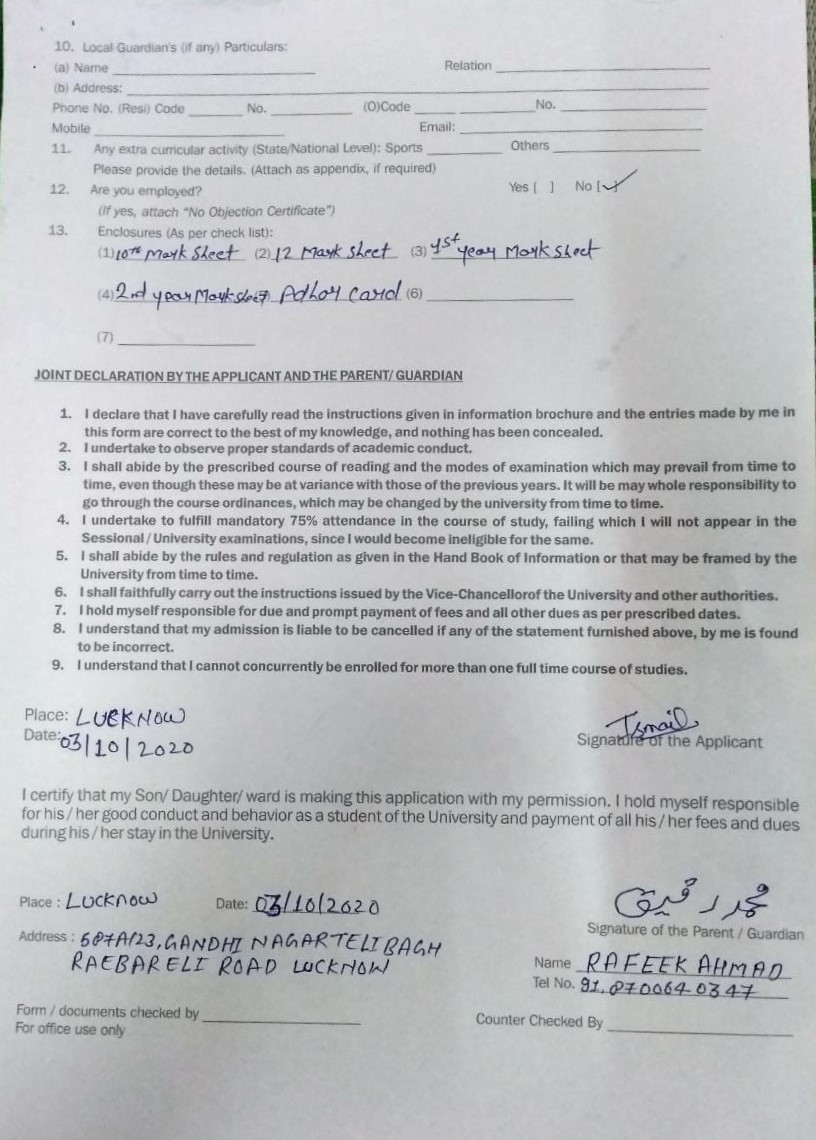 10. Local Guardian's (if any) Particulars:
(a) Name Relation
(b) Address:
Phone No. (Resi) Code No. (O)Code No.
Mobile Email:
11. Any extra curricular activity (State/National Level): Sports Others
Please provide the details. (Attach as appendix, if required)
12. Are you employed? Yes [ ] No [✓]
(If yes, attach "No Objection Certificate")
13. Enclosures (As per check list):
(1) 10th Mark Sheet (2) 12 Mark Sheet (3) 1st year Mark Sheet
(4) 2nd year Mark sheet Adhar Card (6)
(7)
JOINT DECLARATION BY THE APPLICANT AND THE PARENT/ GUARDIAN
1. I declare that I have carefully read the instructions given in information brochure and the entries made by me in
this form are correct to the best of my knowledge, and nothing has been concealed.
2. I undertake to observe proper standards of academic conduct.
3. I shall abide by the prescribed course of reading and the modes of examination which may prevail from time to
time, even though these may be at variance with those of the previous years. It will be may whole responsibility to
go through the course ordinances, which may be changed by the university from time to time.
4. I undertake to fulfill mandatory 75% attendance in the course of study, failing which I will not appear in the
Sessional/University examinations, since I would become ineligible for the same.
5. I shall abide by the rules and regulation as given in the Hand Book of Information or that may be framed by the
University from time to time.
6. I shall faithfully carry out the instructions issued by the Vice-Chancellorof the University and other authorities.
7. I hold myself responsible for due and prompt payment of fees and all other dues as per prescribed dates.
8. I understand that my admission is liable to be cancelled if any of the statement furnished above, by me is found
to be incorrect.
9. I understand that I cannot concurrently be enrolled for more than one full time course of studies.
Place: LUCKNOW
Date: 03/10/2020
Ismail
Signature of the Applicant
I certify that my Son/ Daughter/ ward is making this application with my permission. I hold myself responsible
for his/ her good conduct and behavior as a student of the University and payment of all his/ her fees and dues
during his/ her stay in the University.
Place : Lucknow Date: 03/10/2020
محمد رفیق
Signature of the Parent / Guardian
Address : 607A/23, GANDHI NAGAR TELIBAGH
RAEBARELI ROAD LUCKNOW
Name RAFEEK AHMAD
Tel No. 91, 8700640347
Form / documents checked by
For office use only
Counter Checked By